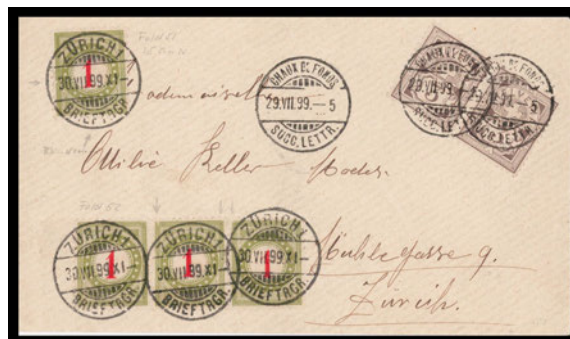 ZÜRICH 1
30.VII.99.XI–
BRIEFTRGR.
1
CHAUX DE FONDS
29.VII.99.– 5
SUCC. LETTR.
CHAUX DE FONDS
29.VII.99.– 5
SUCC. LETTR.
CHAUX DE FONDS
29.VII.99.– 5
SUCC. LETTR.
Mademoiselle
Ottilie Keller Modes.
ZÜRICH 1
30.VII.99.XI–
BRIEFTRGR.
1
ZÜRICH 1
30.VII.99.XI–
BRIEFTRGR.
1
ZÜRICH 1
30.VII.99.XI–
BRIEFTRGR.
1
Mühlegasse 9.
Zürich.